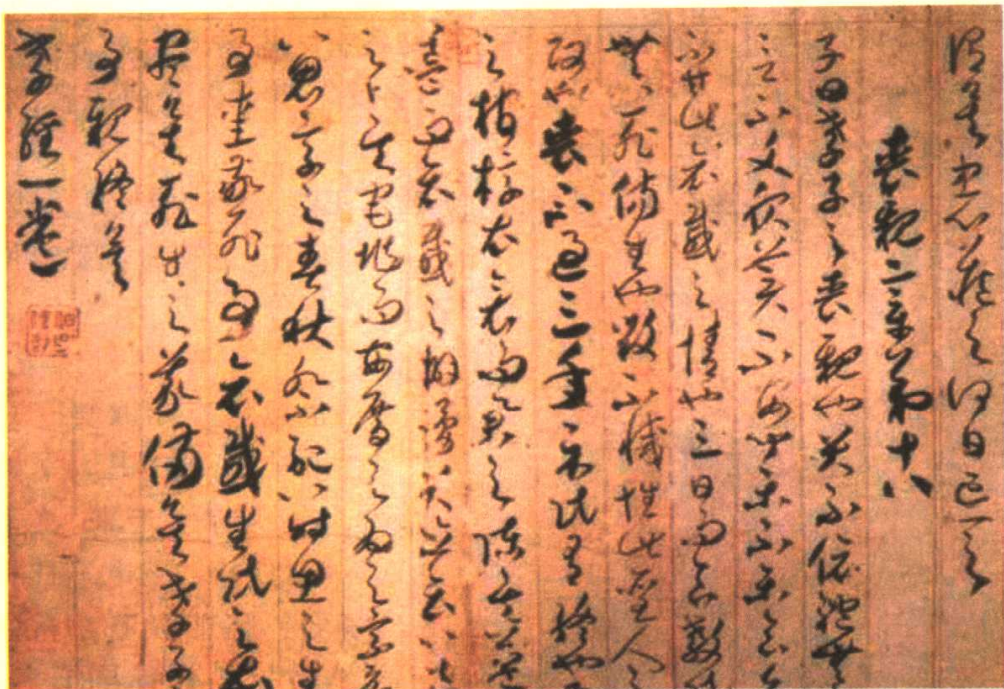 謂矣中心藏之何日忘之
喪親章第十八
子曰孝子之喪親也哭不偯禮無
言不文服美不安聞樂不樂食
不甘此哀戚之情也三日而食教
無以死傷生也毀不滅性此聖人之
政也喪不過三年示民有終也
之棺椁衣衾而舉之陳其簠
簋而哀戚之擗踊哭泣哀以送
之卜其宅兆而安厝之為之宗廟
以鬼享之春秋祭祀以時思之生
事愛敬死事哀戚生民之本
盡矣死生之義備矣孝子之
事親終矣
孝經一卷